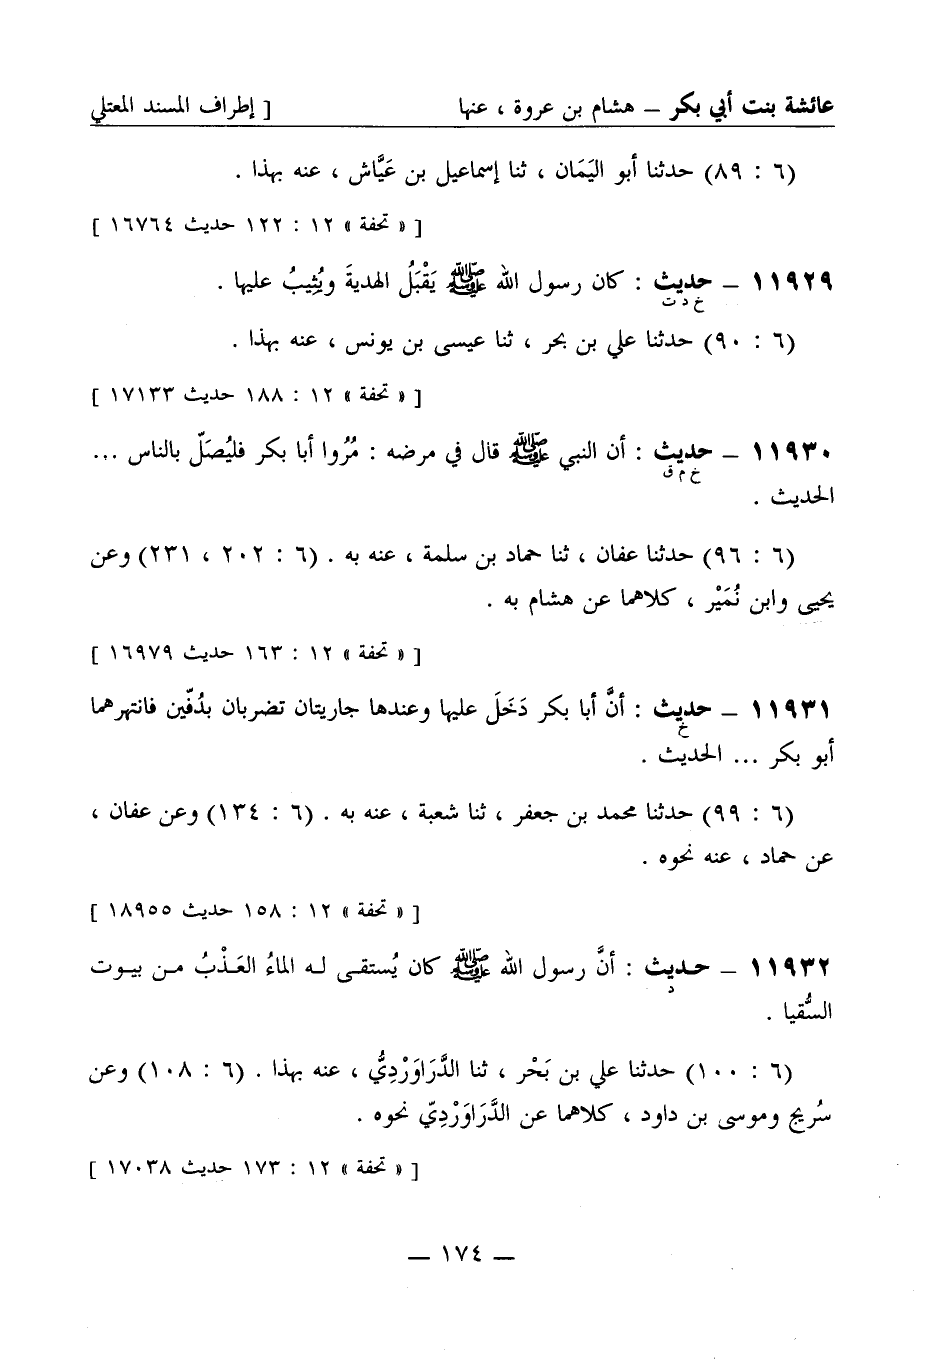 عائشة بنت أبي بكر – هشام بن عروة ، عنها [ إطراف المسند المعتلي
(٦ : ٨٩) حدثنا أبو اليَمَان ، ثنا إسماعيل بن عَيَّاش ، عنه بهذا .
[ « تحفة » ١٢ : ١٢٢ حديث ١٦٧٦٤ ]
١١٩٢٩ – حديث : كان رسول الله ﷺ يَقْبَلُ الهديةَ ويُثِيبُ عليها .
خ د ت
(٦ : ٩٠) حدثنا علي بن بحر ، ثنا عيسى بن يونس ، عنه بهذا .
[ « تحفة » ١٢ : ١٨٨ حديث ١٧١٣٣ ]
١١٩٣٠ – حديث : أن النبي ﷺ قال في مرضه : مُرُوا أبا بكر فليُصَلّ بالناس ...
خ م ق
الحديث .
(٦ : ٩٦) حدثنا عفان ، ثنا حماد بن سلمة ، عنه به . (٦ : ٢٠٢ ، ٢٣١) وعن
يحيى وابن نُمَيْر ، كلاهما عن هشام به .
[ « تحفة » ١٢ : ١٦٣ حديث ١٦٩٧٩ ]
١١٩٣١ – حديث : أنَّ أبا بكر دَخَلَ عليها وعندها جاريتان تضربان بدُفّين فانتهرهما
خ
أبو بكر ... الحديث .
(٦ : ٩٩) حدثنا محمد بن جعفر ، ثنا شعبة ، عنه به . (٦ : ١٣٤) وعن عفان ،
عن حماد ، عنه نحوه .
[ « تحفة » ١٢ : ١٥٨ حديث ١٨٩٥٥ ]
١١٩٣٢ – حديث : أنَّ رسول الله ﷺ كان يُستقى له الماءُ العَذْبُ من بيوت
د
السُّقيا .
(٦ : ١٠٠) حدثنا علي بن بَحْر ، ثنا الدَّرَاوَرْدِيُّ ، عنه بهذا . (٦ : ١٠٨) وعن
سُريج وموسى بن داود ، كلاهما عن الدَّرَاوَرْدِيّ نحوه .
[ « تحفة » ١٢ : ١٧٣ حديث ١٧٠٣٨ ]
– ١٧٤ –